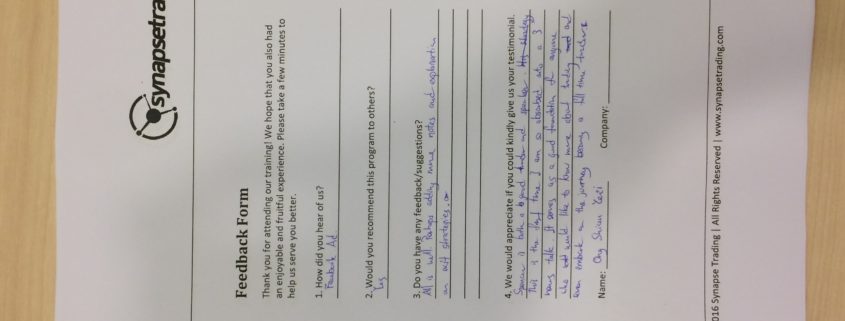 synapsetra
Feedback Form
Thank you for attending our training! We hope that you also had
an enjoyable and fruitful experience. Please take a few minutes to
help us serve you better.
1. How did you hear of us?
Facebook Ad
2. Would you recommend this program to others?
Yes
3. Do you have any feedback/suggestions?
All is well. Perhaps adding more notes and explanation
on exit strategies.
4. We would appreciate if you could kindly give us your testimonial.
Spencer is both a good trader and speaker.
This is the first time I am so absorbed into a 3
hours talk. It serves as a good foundation for anyone
who would like to know more about trading and
even embark on the journey becoming a full time trader.
Name: Ong Shiun Company:
016 Synapse Trading | All Rights Reserved | www.synapsetrading.com